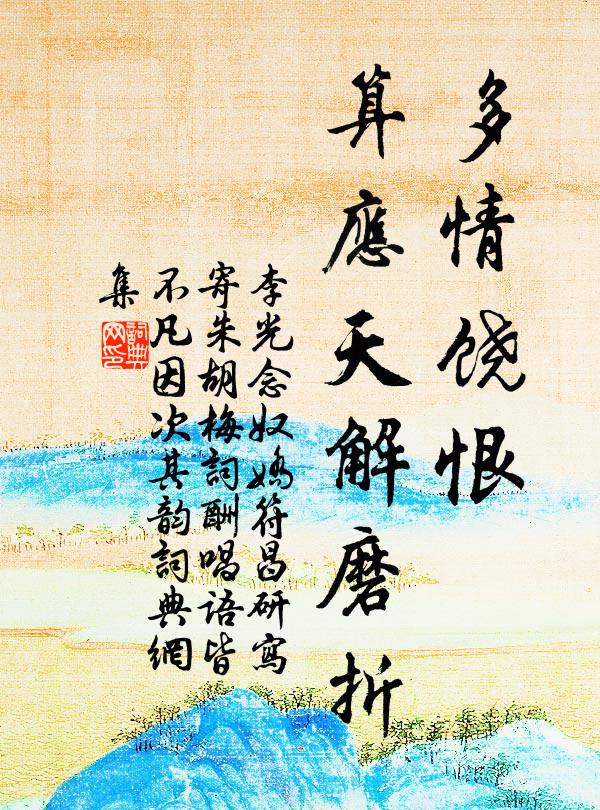 多情饶恨
算應天解磨折
李光念奴嬌符昌研寫
寄朱胡梅詞酬唱语皆
不凡因次其韵詞典網
集
詞典
网印